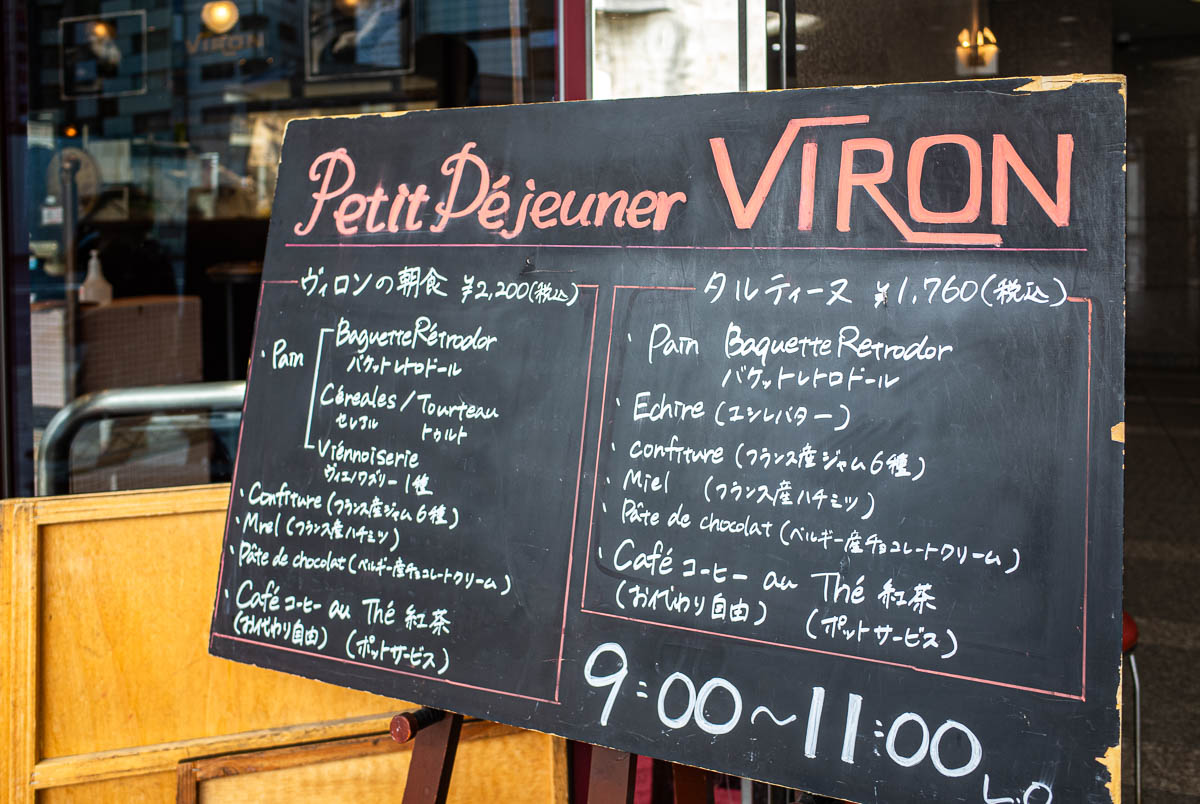 VIRON
Petit Déjeuner VIRON
ヴィロンの朝食 ¥2,200(税込)
・Pain
Baguette Rétrodor
バゲットレトロドール
Céreales / Tourteau
セレアル トゥルト
Viénnoiserie
ヴィエノワズリー 1種
・Confiture (フランス産ジャム6種)
・Miel (フランス産ハチミツ)
・Pâte de chocolat (ベルギー産チョコレートクリーム)
・Café コーヒー au Thé 紅茶
(お代わり自由) (ポットサービス)
タルティーヌ ¥1,760(税込)
・Pain Baguette Retrodor
バゲットレトロドール
・Echire (エシレバター)
・confiture (フランス産ジャム6種)
・Miel (フランス産ハチミツ)
・Pâte de chocolat (ベルギー産チョコレートクリーム)
・Café コーヒー au Thé 紅茶
(お代わり自由) (ポットサービス)
9:00~11:00
L.O